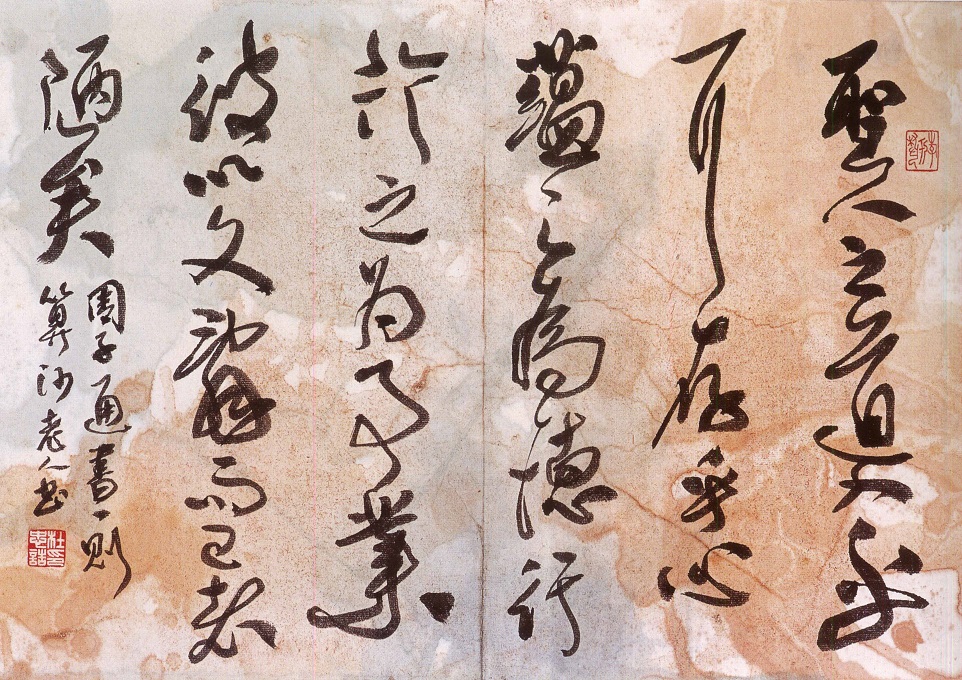 聖人之道入乎
耳存乎心
蘊之為德行
行之为事業
彼以文辭而已者
陋矣
周子通書一則
算沙老人書
杜印忠誥